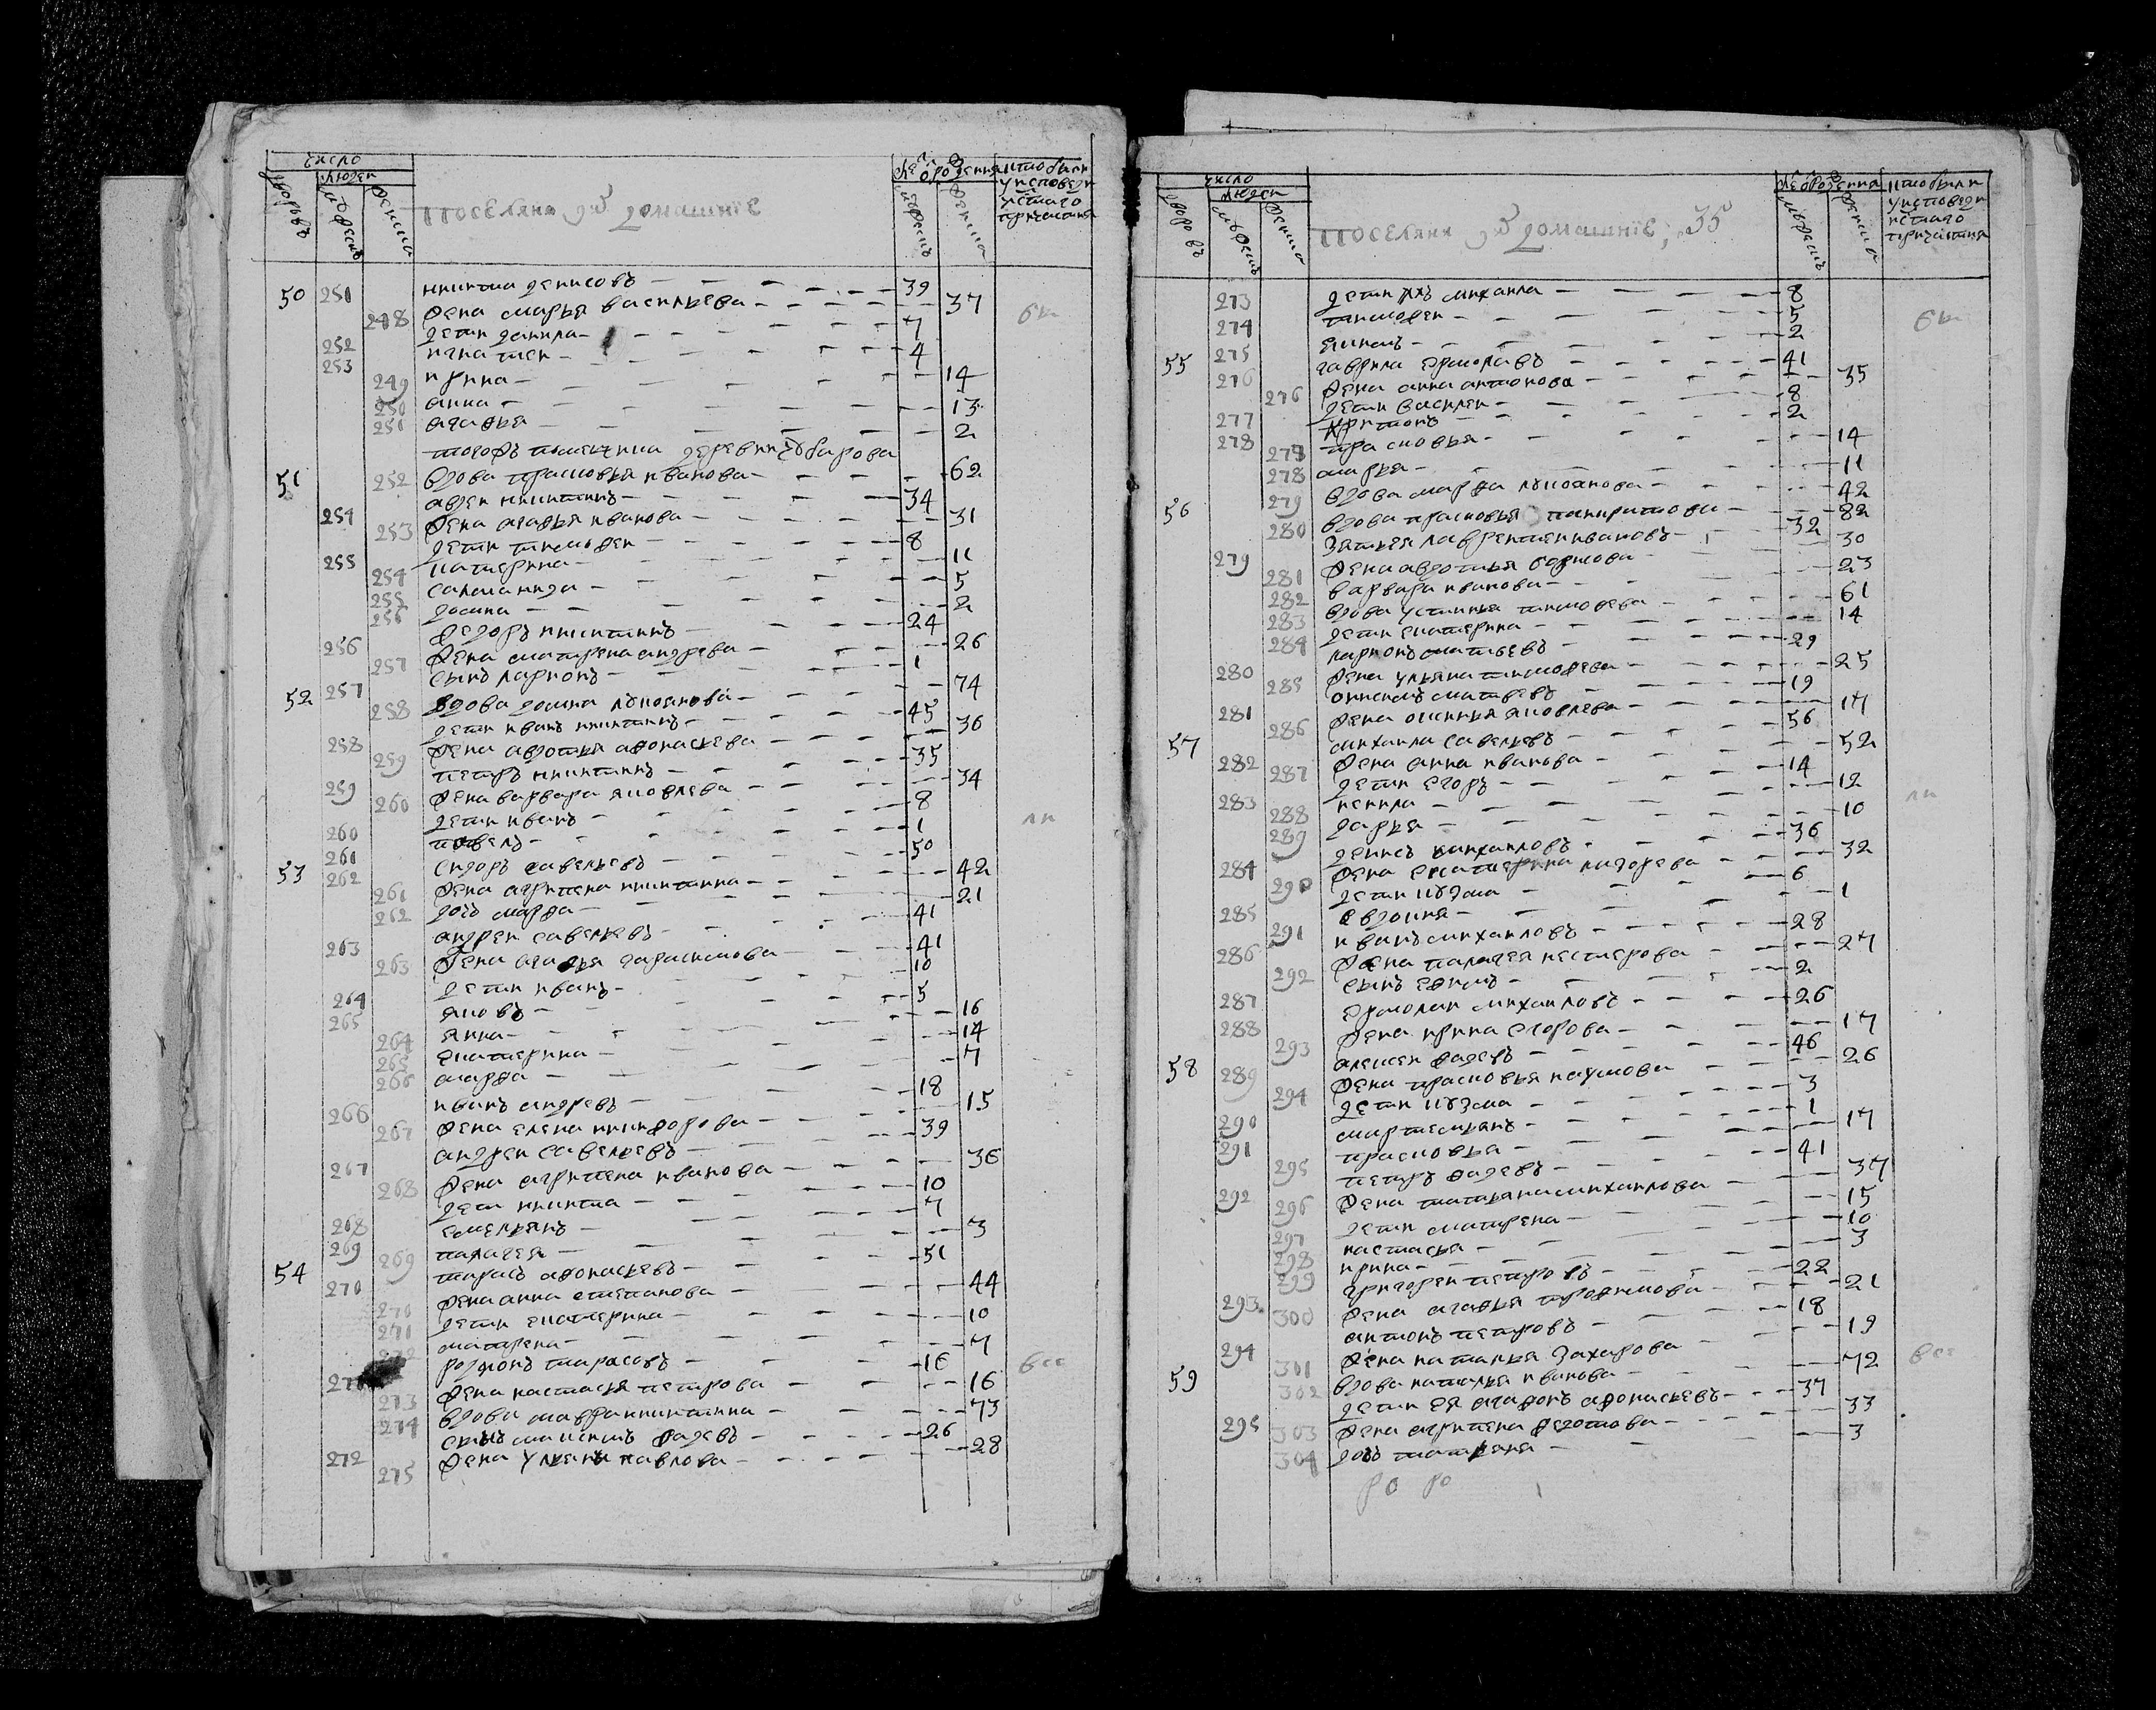 число
людей
дворовъ
мужескъ
женска
поселяня и домашние
лѣ от рожения
мужескъ
женска
кто были
у исповеди
и стаго
причастия
50 251 никита денисовъ 39
248 жена марья васильева 37
252 дети данила 7
253 игнатей 4
249 ирина 14
250 анна 13
251 агафья 2
тогожъ помещика деревни
51 252 вдова прасковья иванова 62
254 авдей никитинъ 34
253 жена агафья иванова 31
255 дети тимофей 8
254 катерина 11
255 саламанида 5
256 домна 2
256 федоръ никитинъ 24
257 жена матрена андрева 26
257 сынъ ларионъ 1
52 258 вдова домна лукоянова 74
258 дети иванъ никитинъ 45
259 жена авдотья афонасьева 36
259 петръ никитинъ 35
260 жена варвара яковлева 34
260 дети иванъ 8
261 павелъ 1
53 262 сидоръ савельевъ 50
261 жена агрипена никитина 42
262 дочь марфа 21
263 андрей савельевъ 41
263 жена агафья гарасимова 41
264 дети иванъ 10
265 яковъ 5
264 анна 16
265 екатерина 14
266 марфа 7
266 иванъ андревъ 18
267 жена елена никифорова 15
267 андрей савельевъ 39
268 жена агрипена иванова 36
268 дети никита 10
269 емельянъ 7
269 палагея 3
54 270 тарасъ афонасьевъ 51
270 жена анна степанова 44
271 дети екатерина 10
272 матрена 7
271 родионъ тарасовъ 16
273 жена настасья петрова 16
274 вдова мавра никитина 73
272 сынъ максимъ фадевъ 26
275 жена ульяна павлова 28
число
людей
дворовъ
мужескъ
женска
поселяня и домашние, 35
лѣ от рожения
мужескъ
женска
кто были
у исповеди
и стаго
причастия
273 дети ихъ михаила 8
274 тимофей 5
275 екимъ 2
55 276 гаврила ермолавъ 41
276 жена анна антонова 35
277 дети василей 8
278 харитонъ 2
277 прасковья 14
278 марья 11
279 вдова марфа лукоянова 42
56 280 вдова прасковья панкратова 82
279 зятья лаврентей ивановъ 32
281 жена авдотья борисова 30
282 варвара иванова 23
283 вдова устинья тимофева 61
284 дети екатерина 14
280 ларионъ матвевъ 29
285 жена ульяна тимофева 25
281 онисимъ матвевъ 19
286 жена аксинья яковлева 17
57 282 михаила савельевъ 56
287 жена анна иванова 52
283 дети егоръ 14
288 ненила 12
289 дарья 10
284 денисъ михаиловъ 36
290 жена екатерина лазорева 32
285 дети кузма 6
291 евдокия 1
286 иванъ михаиловъ 28
292 жена палагея нестерова 27
287 сынъ ефимъ 2
288 ермолай михаиловъ 26
293 жена ирина егорова 17
58 289 алексей фадевъ 46
294 жена прасковья наумова 26
290 дети кузма 3
291 мартемьянъ 1
295 прасковья 17
292 петръ фадевъ 41
296 жена татьяна михаилова 37
297 дети матрена 15
298 настасья 10
299 ирина 3
293 григорей петровъ 22
300 жена агафья трофимова 21
294 антонъ петровъ 18
301 жена наталья захарова 19
59 302 вдова наталья иванова 72
295 дети ея агафонъ афонасьевъ 37
303 жена агрипена федотова 33
304 дочь татьяна 3